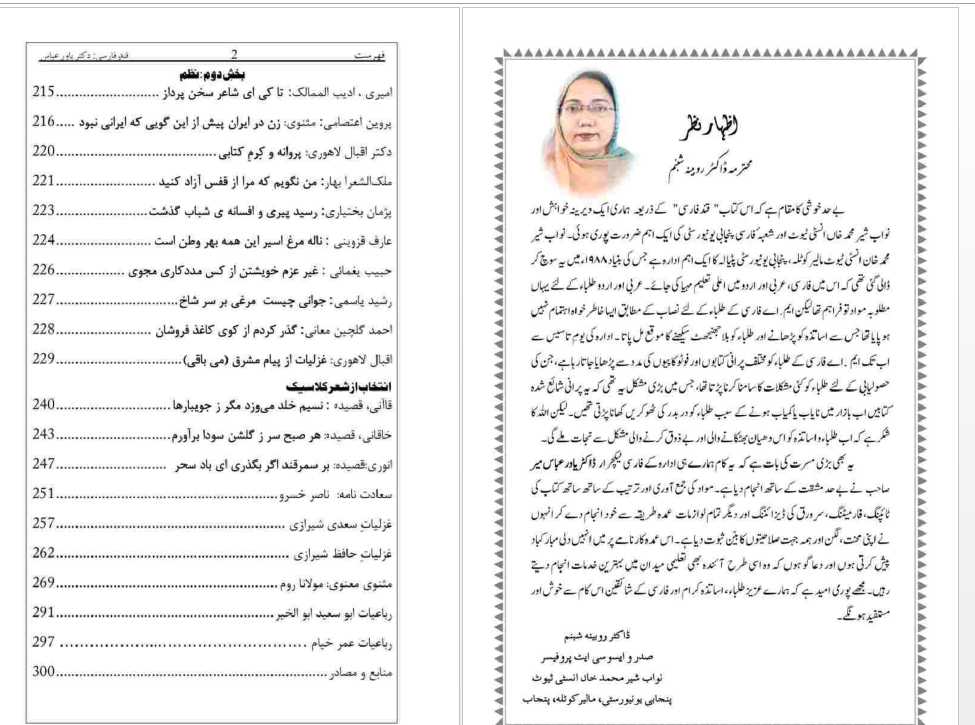 اظہارِ نظر
محترمہ ڈاکٹر روبینہ شبنم
بے حد خوشی کا مقام ہے کہ اس کتاب "قند فارسی" کے ذریعہ ہماری ایک دیرینہ خواہش اور
نواب شیر محمد خاں انسٹی ٹیوٹ اور شعبۂ فارسی پنجابی یونیورسٹی کی ایک اہم ضرورت پوری ہوئی۔ نواب شیر
محمد خان انسٹی ٹیوٹ مالیر کوٹلہ، پنجابی یونیورسٹی پٹیالہ کا ایک اہم ادارہ ہے جس کی بنیاد ۱۹۸۸ء میں یہ سوچ کر
ڈالی گئی تھی کہ اس میں فارسی، عربی اور اردو میں اعلی تعلیم مہیا کی جائے۔ عربی اور اردو طلباء کے لئے یہاں
مطلوبہ مواد تو فراہم تھا لیکن ایم۔اے فارسی کے طلباء کے لئے نصاب کے مطابق ایسا خاطر خواہ اہتمام نہیں
ہو پایا تھا جس سے اساتذہ کو پڑھانے اور طلباء کو بلا جھنجھٹ سیکھنے کا موقع مل پاتا۔ ادارہ کی یوم تاسیس سے
اب تک ایم ۔اے فارسی کے طلباء کو مختلف پرانی کتابوں اور فوٹو کاپیوں کی مدد سے پڑھایا جاتا رہا ہے، جن کی
حصولیابی کے لئے طلباء کو کئی مشکلات کا سامنا کرنا پڑتا تھا، جس میں بڑی مشکل یہ تھی کہ یہ پرانی شائع شدہ
کتابیں اب بازار میں نایاب یا کمیاب ہونے کے سبب طلباء کو در بدر کی ٹھوکریں کھانا پڑتی تھیں۔ لیکن اللہ کا
شکر ہے کہ اب طلباء و اساتذہ کو اس دھیان بھٹکانے والی اور بے ذوق کرنے والی مشکل سے نجات ملے گی۔
یہ بھی بڑی مسرت کی بات ہے کہ یہ کام ہمارے ہی ادارہ کے فارسی لیکچرار ڈاکٹر یاور عباس میر
صاحب نے بے حد مشقت کے ساتھ انجام دیا ہے۔ مواد کی جمع آوری اور ترتیب کے ساتھ ساتھ کتاب کی
ٹائپنگ، فارمیٹنگ، سر ورق کی ڈیزائننگ اور دیگر تمام لوازمات عمدہ طریقہ سے خود انجام دے کر انہوں
نے اپنی محنت، لگن اور ہمہ جہت صلاحیتوں کا بیّن ثبوت دیا ہے۔ اس عمدہ کارنامے پر میں انہیں دلی مبارکباد
پیش کرتی ہوں اور دعا گو ہوں کہ وہ اسی طرح آئندہ بھی تعلیمی میدان میں بہترین خدمات انجام دیتے
رہیں۔ مجھے پوری امید ہے کہ ہمارے عزیز طلباء، اساتذہ کرام اور فارسی کے شائقین اس کام سے خوش اور
مستفید ہونگے۔
ڈاکٹر روبینہ شبنم
صدر و ایسوسی ایٹ پروفیسر
نواب شیر محمد خاں انسٹی ٹیوٹ
پنجابی یونیورسٹی، مالیر کوٹلہ، پنجاب
فهرست 2 قند فارسی: دکتر یاور عباس
بخش دوم: نظم
امیری ، ادیب الممالک: تا کی ای شاعر سخن پرداز ..........................215
پروین اعتصامی: مثنوی: زن در ایران پیش از این گویی که ایرانی نبود .....216
دکتر اقبال لاهوری: پروانه و کِرم کتابی.......................................220
ملک‌الشعرا بهار: من نگویم که مرا از قفس آزاد کنید ........................221
پژمان بختیاری: رسید پیری و افسانه ی شباب گذشت........................223
عارف قزوینی : ناله مرغ اسیر این همه بهر وطن است ......................224
حبیب یغمائی : غیر عزم خویشتن از کس مددکاری مجوی .................226
رشید یاسمی: جوانی چیست مرغی بر سر شاخ..............................227
احمد گلچین معانی: گذر کردم از کوی کاغذ فروشان ......................228
اقبال لاهوری: غزلیات از پیام مشرق (می باقی)............................229
انتخاب از شعر کلاسیک
قاآنی، قصیده : نسیم خلد می‌وزد مگر ز جویبارها ..........................240
خاقانی، قصیده: هر صبح سر ز گلشن سودا برآورم..........................243
انوری:قصیده: بر سمرقند اگر بگذری ای باد سحر ..........................247
سعادت نامه: ناصر خسرو.....................................................251
غزلیاتِ سعدی شیرازی .......................................................257
غزلیاتِ حافظ شیرازی ........................................................262
مثنوی معنوی: مولانا روم .....................................................269
رباعیات ابو سعید ابو الخیر....................................................291
رباعیات عمر خیام .............................................................297
منابع و مصادر..................................................................300